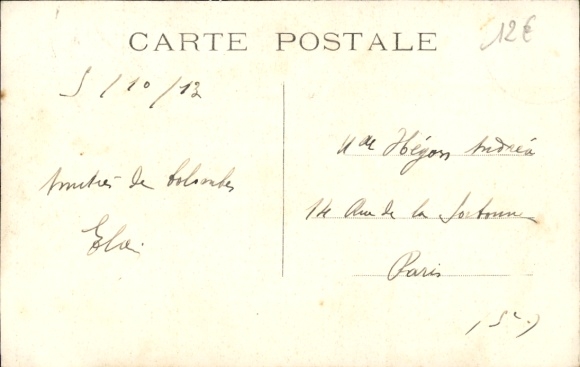 CARTE POSTALE
12€
5/10/13
Amitiés de Colombes
Mde Hégon Andréa
14 Rue de la Sorbonne
Paris
(5e)